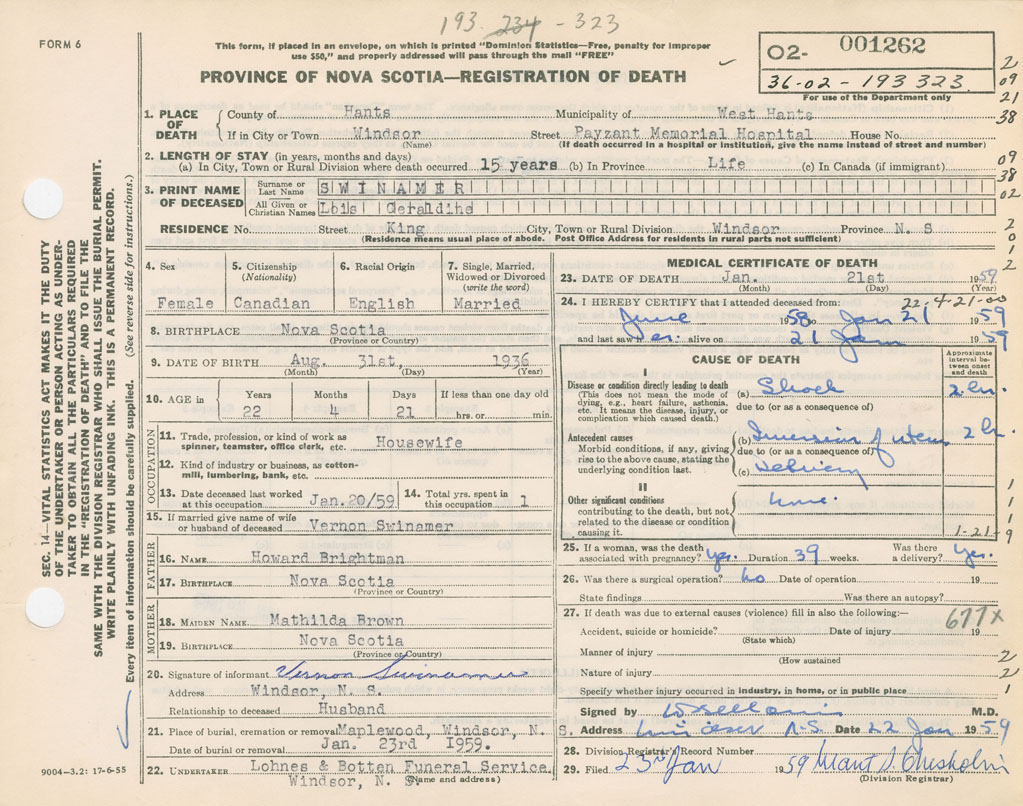 193. 234 - 323
FORM 6
This form, if placed in an envelope, on which is printed "Dominion Statistics—Free, penalty for improper
use $50," and properly addressed will pass through the mail "FREE"
PROVINCE OF NOVA SCOTIA—REGISTRATION OF DEATH
02- 001262
36-02-193 323.
For use of the Department only
2
09
21
38
09
38
02
2
0
1
2
1. PLACE OF DEATH County of Hants Municipality of West Hants
If in City or Town Windsor Street Payzant Memorial Hospital House No.
(Name) (If death occurred in a hospital or institution, give the name instead of street and number)
2. LENGTH OF STAY (in years, months and days)
(a) In City, Town or Rural Division where death occurred 15 years (b) In Province Life (c) In Canada (if immigrant)
3. PRINT NAME OF DECEASED Surname or Last Name SWINAMER
All Given or Christian Names Lois Geraldine
RESIDENCE No. Street King City, Town or Rural Division Windsor Province N. S
(Residence means usual place of abode. Post Office Address for residents in rural parts not sufficient)
4. Sex 5. Citizenship (Nationality) 6. Racial Origin 7. Single, Married, Widowed or Divorced (write the word)
Female Canadian English Married
8. BIRTHPLACE Nova Scotia
(Province or Country)
9. DATE OF BIRTH Aug. 31st, 1936
(Month) (Day) (Year)
10. AGE in Years Months Days If less than one day old
22 4 21 hrs. or min.
OCCUPATION
11. Trade, profession, or kind of work as spinner, teamster, office clerk, etc. Housewife
12. Kind of industry or business, as cotton-mill, lumbering, bank, etc.
13. Date deceased last worked at this occupation Jan.20/59 14. Total yrs. spent in this occupation 1
15. If married give name of wife or husband of deceased Vernon Swinamer
FATHER
16. NAME Howard Brightman
17. BIRTHPLACE Nova Scotia
(Province or Country)
MOTHER
18. MAIDEN NAME Mathilda Brown
19. BIRTHPLACE Nova Scotia
(Province or Country)
20. Signature of informant Vernon Swinamer
Address Windsor, N. S.
Relationship to deceased Husband
21. Place of burial, cremation or removal Maplewood, Windsor, N. S.
Date of burial or removal Jan. 23rd 1959.
22. UNDERTAKER Lohnes & Botten Funeral Service.
Windsor, N. S. (Name and address)
MEDICAL CERTIFICATE OF DEATH
23. DATE OF DEATH Jan. 21st 1959
(Month) (Day) (Year)
24. I HEREBY CERTIFY that I attended deceased from: 22-4-21-00
June 1958 to Jan 21 1959
and last saw h er alive on 21 Jan 1959
CAUSE OF DEATH
Approximate interval between onset and death
I
Disease or condition directly leading to death
(This does not mean the mode of dying, e.g., heart failure, asthenia, etc. It means the disease, injury, or complication which caused death.)
(a) Shock 2 hr.
due to (or as a consequence of)
Antecedent causes
Morbid conditions, if any, giving rise to the above cause, stating the underlying condition last.
(b) Inversion of uterus 2 hr
due to (or as a consequence of)
(c) Delivery
II
Other significant conditions
contributing to the death, but not related to the disease or condition causing it.
none.
1-21
1
1
1
9
25. If a woman, was the death associated with pregnancy? yes. Duration 39 weeks. Was there a delivery? yes.
26. Was there a surgical operation? no Date of operation 19
State findings Was there an autopsy?
27. If death was due to external causes (violence) fill in also the following:— 677x
Accident, suicide or homicide? Date of injury 19
(State which)
Manner of injury
(How sustained
Nature of injury
Specify whether injury occurred in industry, in home, or in public place
2
2
1
Signed by M.D.
Address Windsor N.S. Date 22 Jan 1959
28. Division Registrar's Record Number
29. Filed 23rd Jan 1959 Chisholm
(Division Registrar)
SEC. 14—VITAL STATISTICS ACT MAKES IT THE DUTY
OF THE UNDERTAKER OR PERSON ACTING AS UNDER-
TAKER TO OBTAIN ALL THE PARTICULARS REQUIRED
IN THE "REGISTRATION OF DEATH" AND TO FILE THE
SAME WITH THE DIVISION REGISTRAR WHO SHALL ISSUE THE BURIAL PERMIT.
WRITE PLAINLY WITH UNFADING INK. THIS IS A PERMANENT RECORD.
Every item of information should be carefully supplied. (See reverse side for instructions.)
9004-3.2: 17-6-55